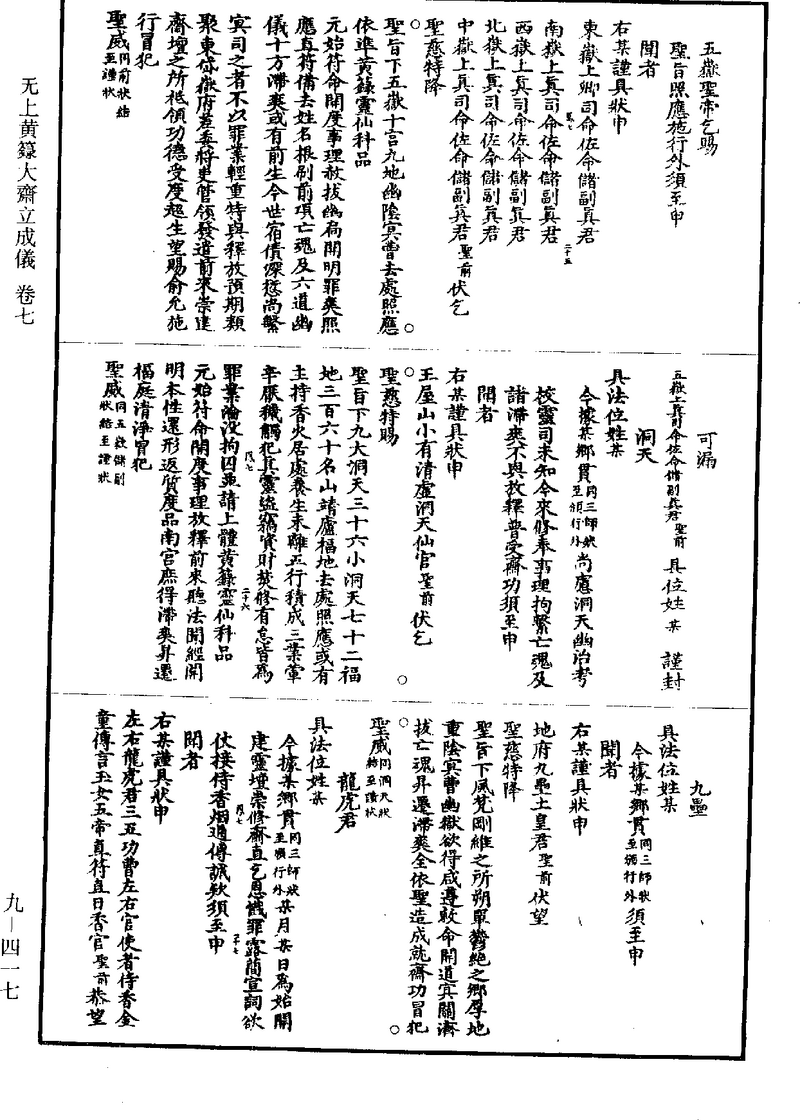 无上黄籙大齋立成儀 卷七
五嶽聖帝乞賜
聖旨照應施行外須至申
聞者
右某謹具狀申
東嶽上卿司命佐命儲副眞君
南嶽上眞司命佐命儲副眞君
西嶽上眞司命佐命儲副眞君
北嶽上眞司命佐命儲副眞君
中嶽上眞司命佐命儲副眞君聖前伏乞
聖慈特降
聖旨下五嶽十宫九地幽陰冥曹去處照應
依準黄籙靈仙科品
元始符命開度事理赦拔幽扃開明罪爽照
應眞符備去姓名根刷前項亡魂及六道幽
儀十方滯爽或有前生今世宿債深愆尚繫
冥司之者不以罪業輕重特與釋放預期類
聚東岱嶽府差委將吏管領發遣前來崇建
齋壇之所祗領功德受度超生望賜俞允施
行冒犯
聖威同前狀結至謹狀
五嶽上眞司命佐命儲副眞君聖前 具位姓某 謹封
可漏
洞天
具法位姓某
今據某鄉貫同三師狀至頒行外尚慮洞天幽治考
校靈司未知今來修奉事理拘繫亡魂及
諸滯爽不與放釋普受齋功須至申
聞者
右某謹具狀申
王屋山小有清虛洞天仙官聖前伏乞
聖慈特賜
聖旨下九大洞天三十六小洞天七十二福
地三百六十名山靖廬福地去處照應或有
主持香火居處養生未離五行積成三業葷
辛厭穢觸犯眞靈盜竊資財焚修有怠皆爲
罪業淪没拘囚並請上體黄籙靈仙科品
元始符命開度事理放釋前來聽法聞經開
明本性還形返質度品南宫庶得滯爽昇遷
福庭清淨冒犯
聖威同五嶽儲副狀結至謹狀
九壘
具法位姓某
今據某鄉貫同三師狀至頒行外須至申
聞者
右某謹具狀申
地府九壘土皇君聖前伏望
聖慈特降
聖旨下風梵剛維之所朔單鬱絶之鄉厚地
重陰冥曹幽獄欲得咸遵敕命開道冥關濟
拔亡魂昇遷滯爽全依聖造成就齋功冒犯
聖威同洞天狀結至謹狀
龍虎君
具法位姓某
今據某鄉貫同三師狀至頒行外某月某日爲始開
建靈壇崇修齋直乞恩懺罪露簡宣詞欲
伏接侍香烟通傳誠欵須至申
聞者
右某謹具狀申
左右龍虎君三五功曹左右官使者侍香金
童傳言玉女五帝直符直日香官聖前恭望
九－四一七